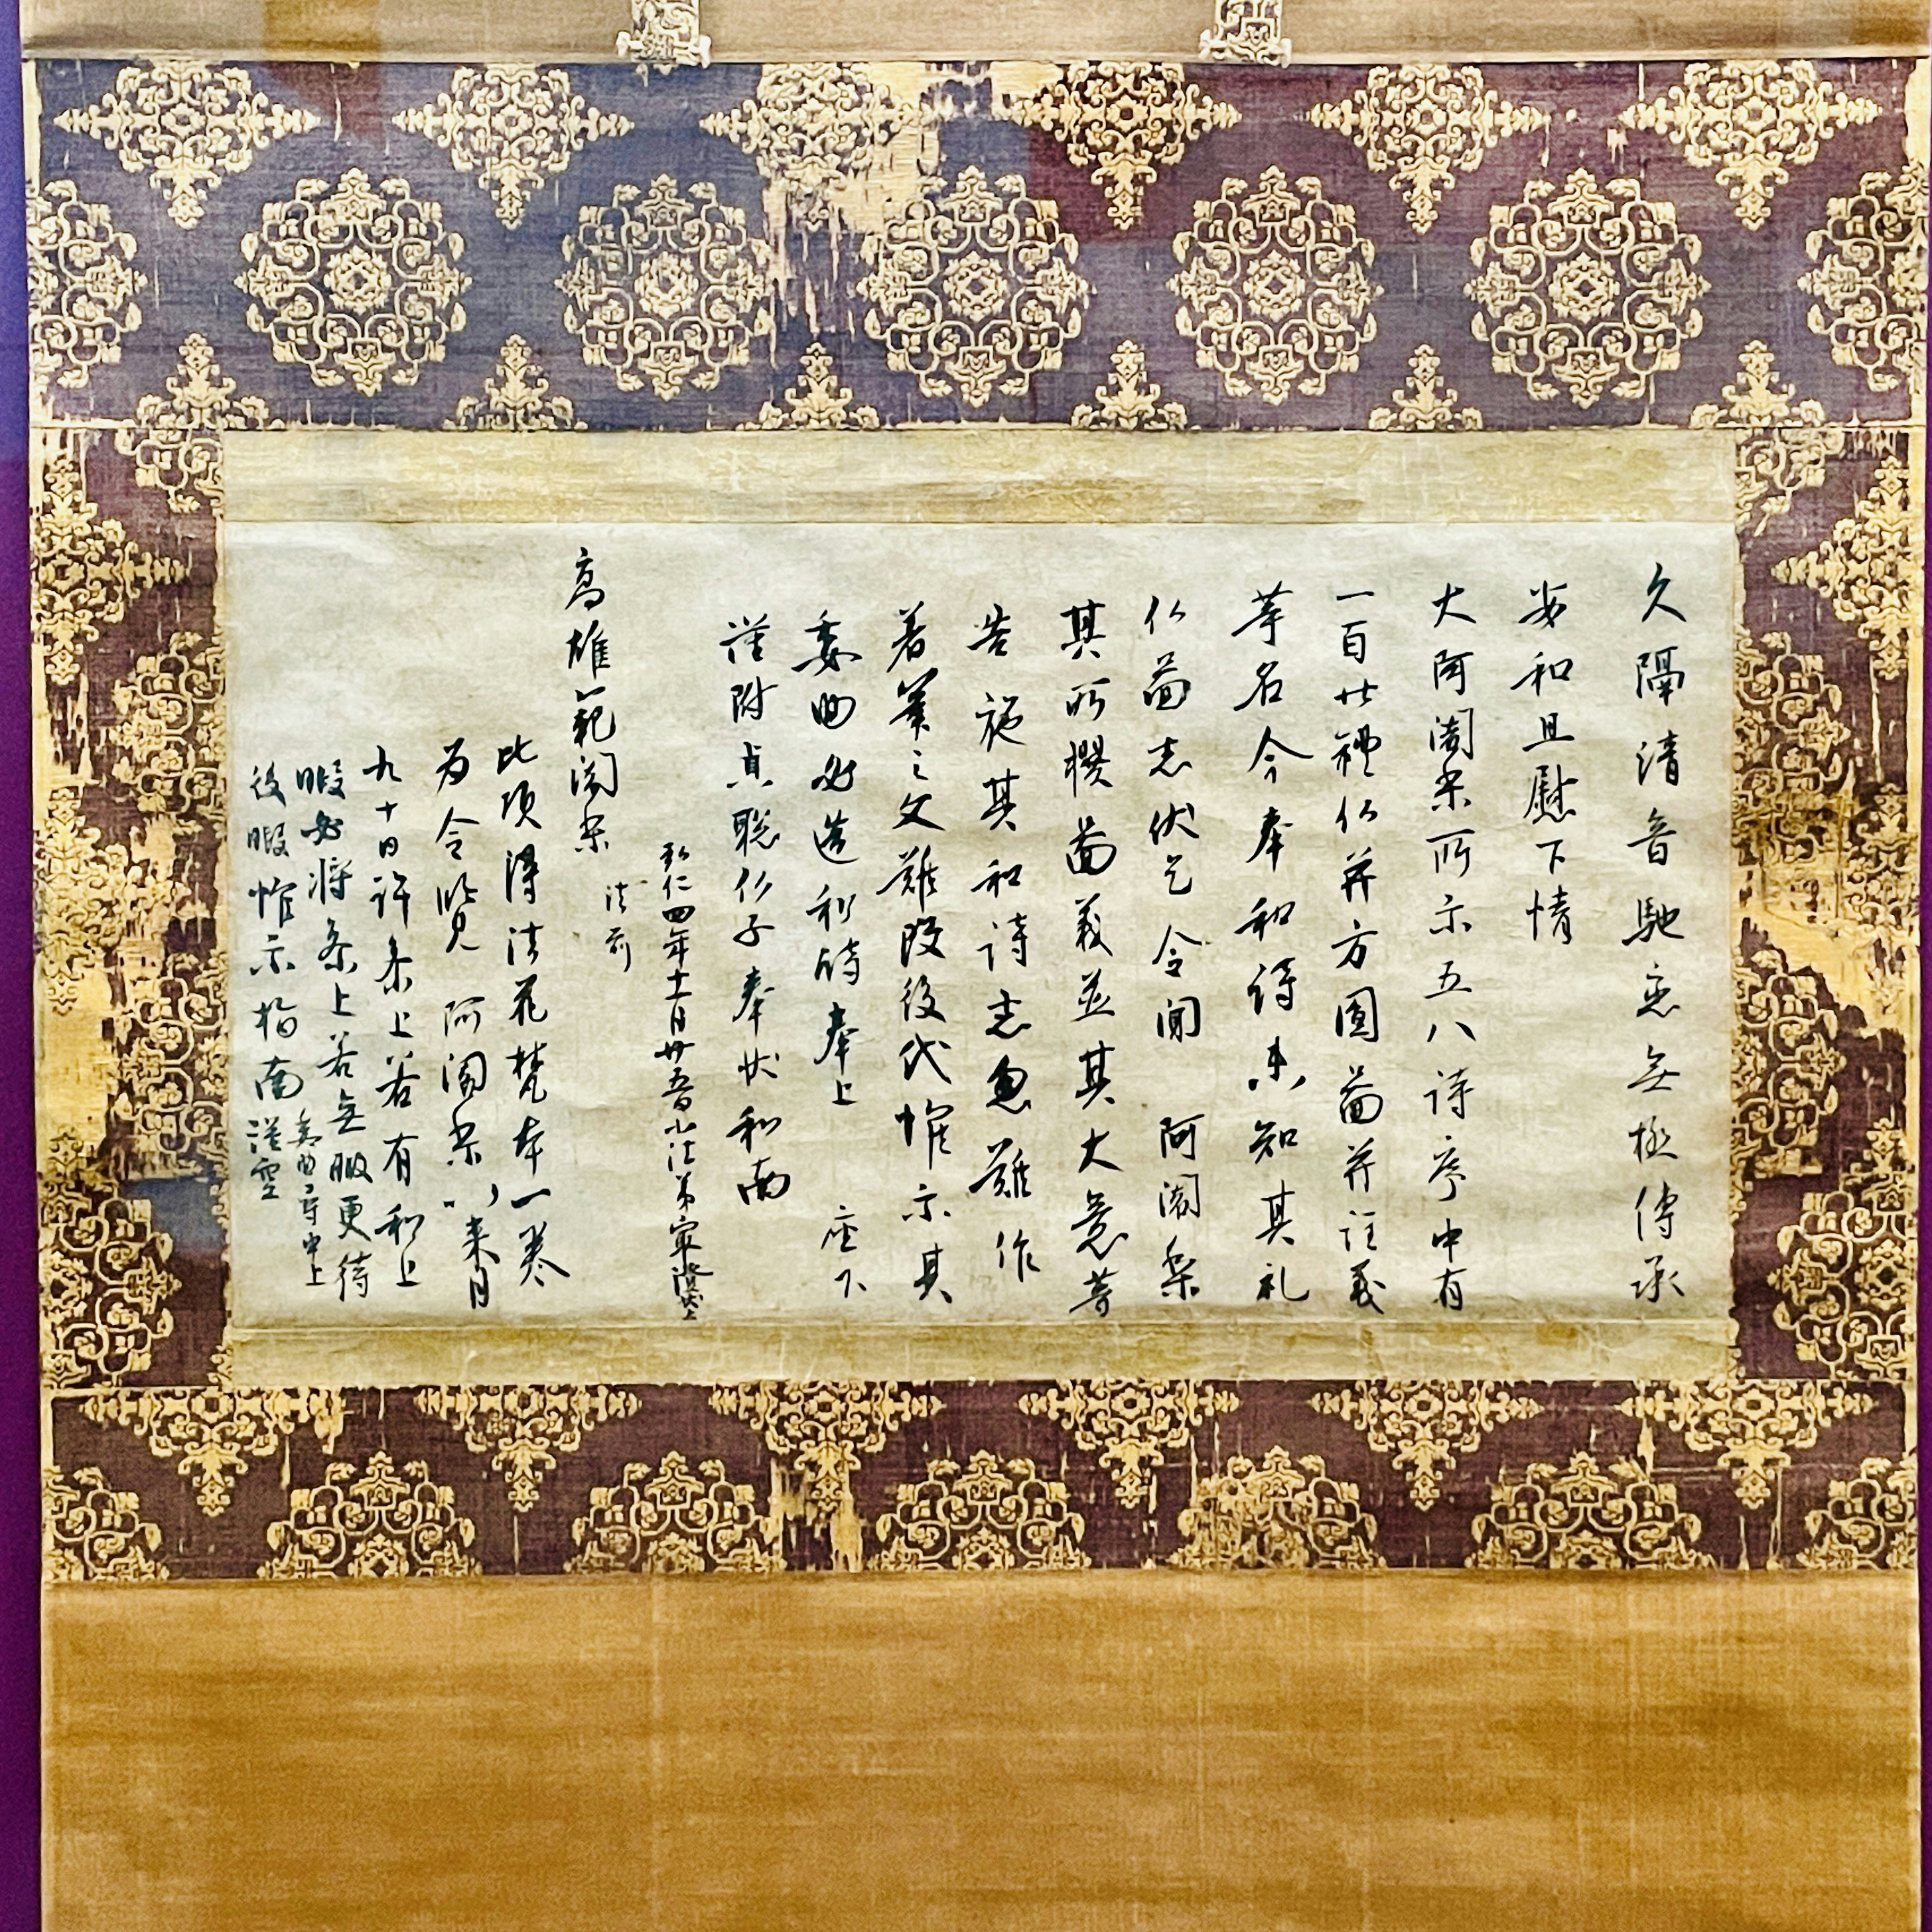 久隔清音馳恋無極傳承
安和且慰下情
大阿闍梨所示五八詩序中有
一百廿禮仏并方圓圖并註義
等名今奉和詩未知其礼
仏圖者伏乞令聞 阿闍梨
其所撰圖義並其大意等
告施其和詩者忽難作
著筆之文難改後代惟示其
委曲必造和詩奉上 座下
謹附貞聡仏子奉状和南
弘仁四年十一月廿五日小法弟最澄状上
高雄範闍梨 法前
此頃得法花梵本一巻
為令覧 阿闍梨以来月
九十日許参上若有和上
暇必将参上若無暇更待
後暇惟示指南 謹空